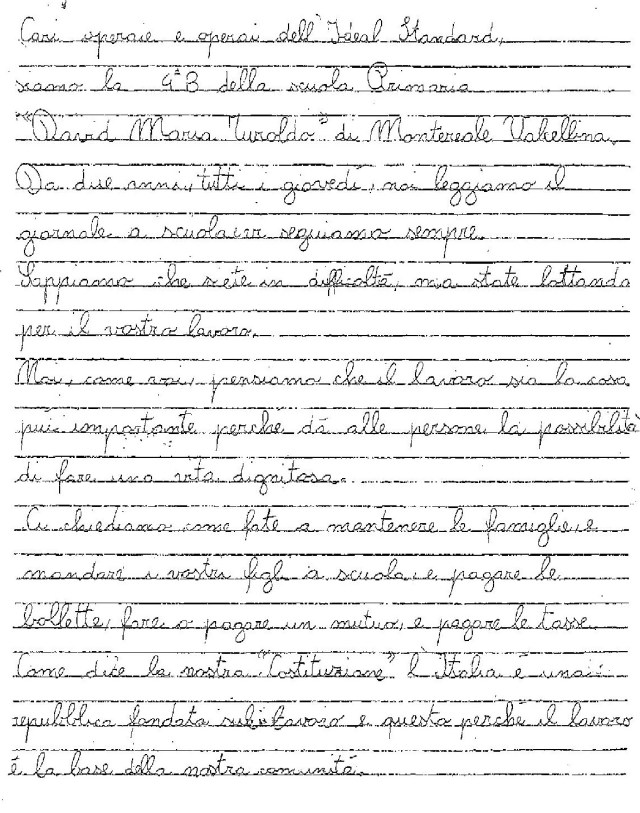 Cari operaie e operai dell'Ideal Standard,
siamo la 4ªB della scuola Primaria
"David Maria Turoldo" di Montereale Valcellina.
Da due anni, tutti i giovedì, noi leggiamo il
giornale a scuola e vi seguiamo sempre.
Sappiamo che siete in difficoltà, ma state lottando
per il vostro lavoro.
Noi, come voi, pensiamo che il lavoro sia la cosa
più importante perché dà alle persone la possibilità
di fare una vita dignitosa.
Ci chiediamo come fate a mantenere le famiglie, e
mandare i vostri figli a scuola, e pagare le
bollette, fare o pagare un mutuo, e pagare le tasse.
Come dice la nostra "Costituzione" l'Italia è una
repubblica fondata sul lavoro e questo perché il lavoro
è la base della nostra comunità.